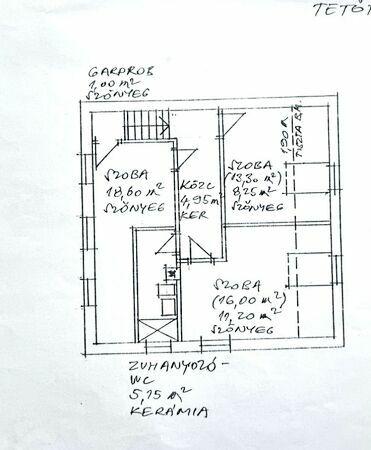 TETŐT
GARDROB
1,00 m²
SZŐNYEG
SZOBA
18,60 m²
SZŐNYEG
KÖZL
4,95 m
KER
SZOBA
(13,30 m²)
8,25 m²
SZŐNYEG
1,90 m
TISZTA B.M.
SZOBA
(16,00 m²)
11,20 m²
SZŐNYEG
ZUHANYOZÓ-
WC
5,15 m²
KERÁMIA